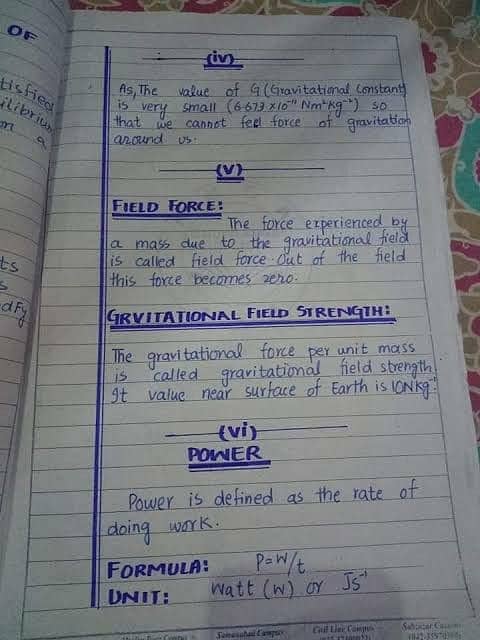 OF
(iv)
As, The value of G (Gravitational Constant)
is very small (6.673 x 10⁻¹¹ Nm²kg⁻²) so
that we cannot feel force of gravitation
around us.
(v)
FIELD FORCE:
The force experienced by
a mass due to the gravitational field
is called field force. Out of the field
this force becomes zero.
GRVITATIONAL FIELD STRENGTH:
The gravitational force per unit mass
is called gravitational field strength
It value near surface of Earth is 10Nkg⁻¹
(vi)
POWER
Power is defined as the rate of
doing work.
FORMULA: P=W/t
UNIT: Watt (W) or Js⁻¹
Samanabad Campus
Civil Line Campus